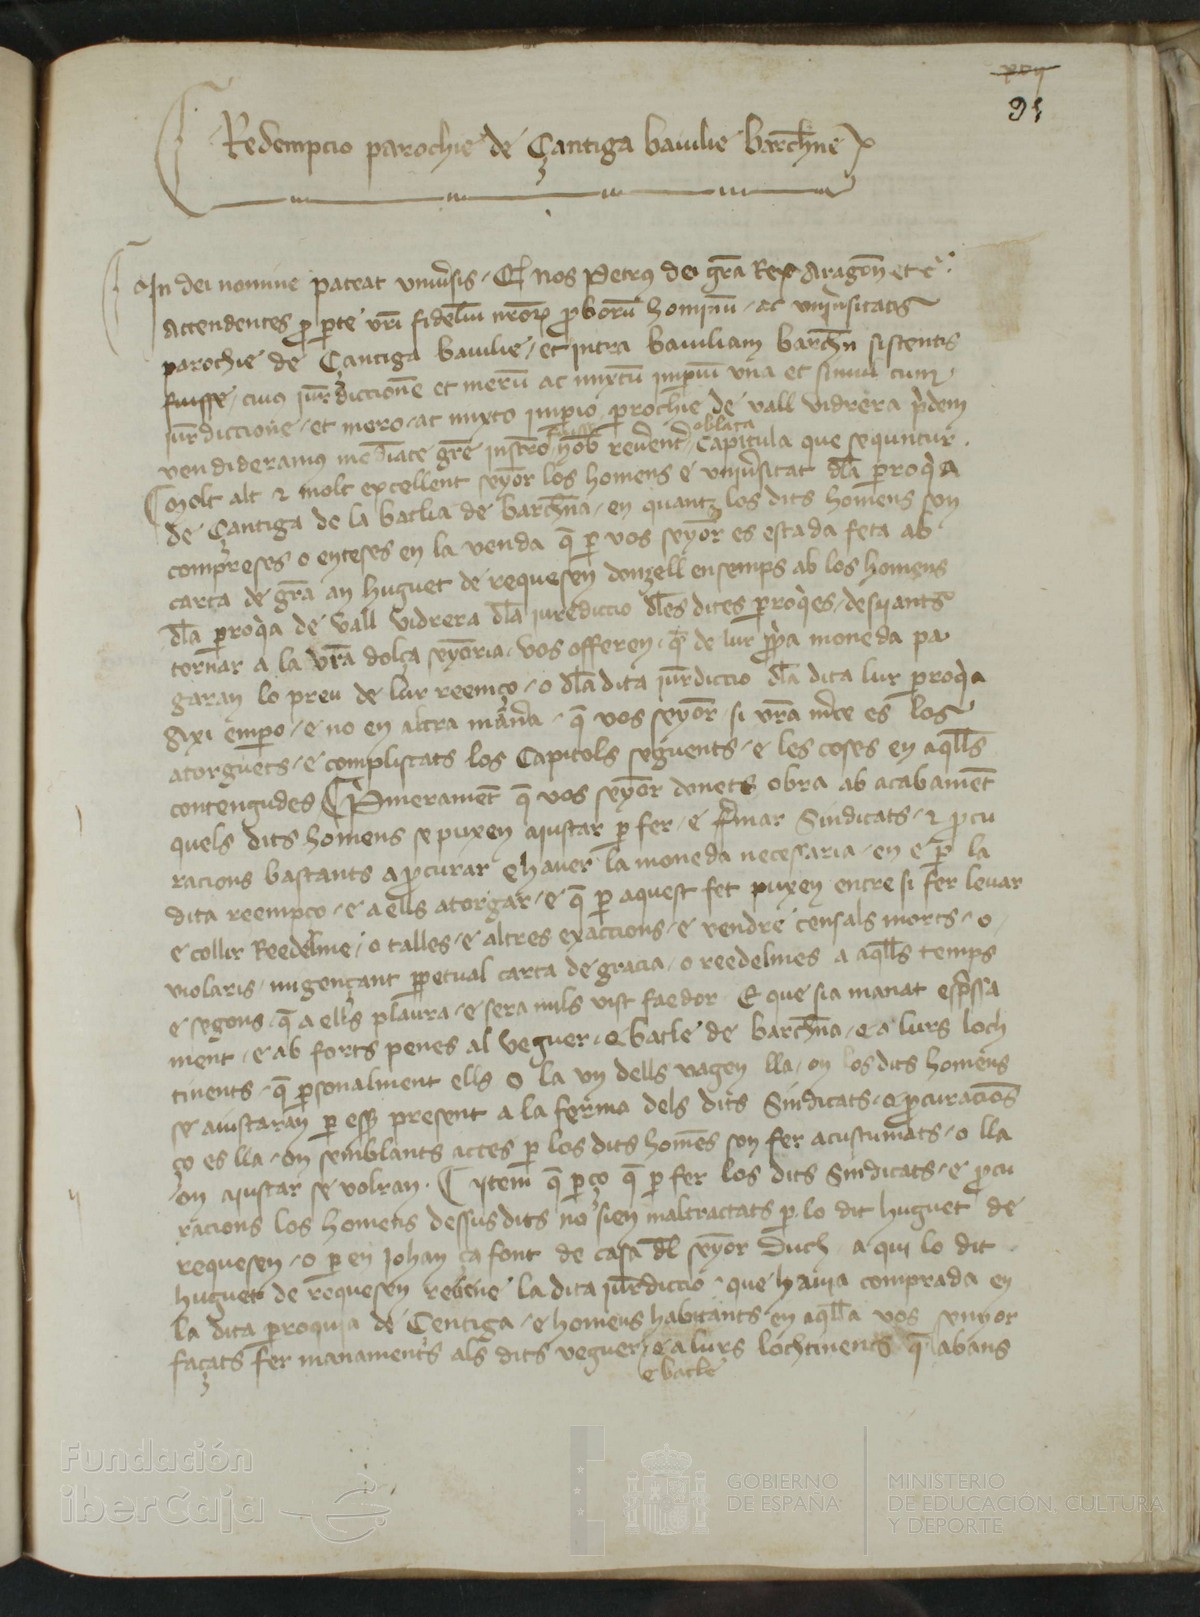 91
Redempcio parochie de Çantiga baiulie barchne
In dei nomine pateat universis Q nos Petrus dei gra Rex Aragon etc
Attendentes p parte vri fidelium nror proborum hominum ac universitatis
parochie de Çantiga baiulie et intra baiuliam barchn sistentis
fuisse cuius jurdiccione et merum ac mixtum imperium una et simul cum
jurdiccione et mero ac mixto imperio prochie de vall vidrera pridem
oblata
vendideramus mediate gre instro nob reverent Capitula que sequntur
Molt alt e molt excellent senyor los homens e universitat dla proqia
de Çantiga de la batlia de barchna en quant los dits homens son
compreses o enteses en la venda q p vos senyor es estada feta ab
carta de gra an huguet de requesen donzell ensemps ab los homens
dla proqia de vall vidrera dla iurediccio dles dites proqies desijants
tornar a la vra dolça senyoria vos offeren q de lur ppia moneda pa
garan lo preu de lur reemço o dla dita jurdiccio dla dita lur proqia
Axi empero e no en altra manera q vos senyor si vra merce es los
atorguets e compliscats los Capitols seguents e les coses en aqlls
contengudes Primerament q vos senyor donets obra ab acabament
quels dits homens se puxen ajustar p fer e fermar Sindicats e procu
racions bastants a procurar e haver la moneda necessaria en e p la
dita reempço e a ells atorgar e q p aquest fet puxen entre si fer levar
e collir Reedelme o talles e altres exaccions e vendre censals morts o
violaris migençant ppetual carta de gracia o reedelmes a aqlls temps
e segons q a ells plaura e sera mils vist faedor E que sia manat espressa
ment e ab forts penes al veguer e batle de barchna e a lurs loch
tinents q personalment ells o la un dells vagen lla on los dits homens
se ajustaran p esser present a la ferma dels dits Sindicats e procuracions
ço es lla on semblants actes p los dits homens son fer acustumats o lla
on ajustar se volran Item q perço q p fer los dits Sindicats e procu
racions los homens dessus dits no sien maltractats p lo dit huguet de
requesen o p en Johan ça font de casa dl senyor Duch a qui lo dit
huguet de requesen revene la dita jurdiccio que havia comprada en
la dita proquia de Centiga e homens habitants en aqlla vos senyor
façats fer manaments als dits veguer e a lurs lochtinents q abans
e batle
Fundación
iberCaja
GOBIERNO
DE ESPAÑA
MINISTERIO
DE EDUCACIÓN, CULTURA
Y DEPORTE